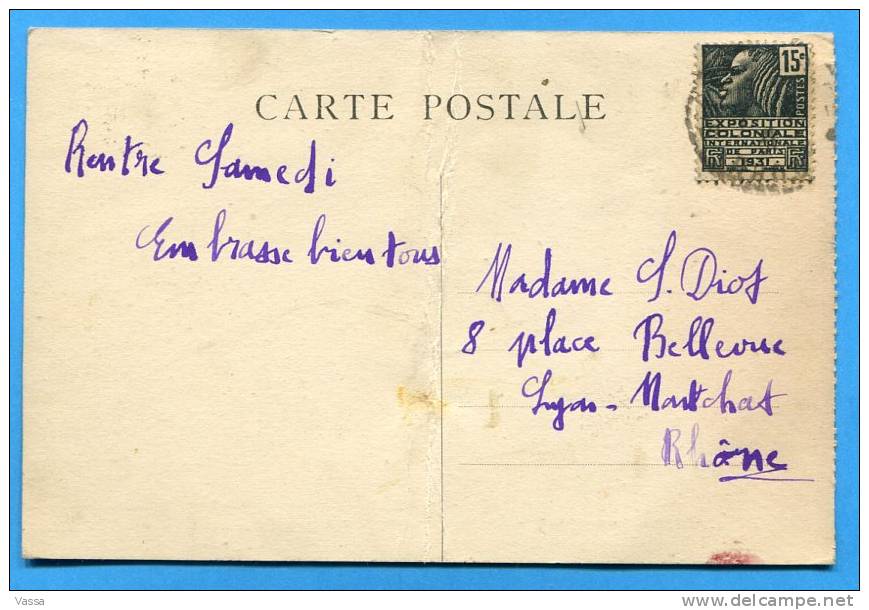 CARTE POSTALE
15c
POSTES
EXPOSITION
COLONIALE
INTERNATIONALE
DE PARIS
1931
Rentre Samedi
Embrasse bien tous
Madame S. Diot
8 place Bellevue
Lyon-Montchat
Rhône
Vassa
delcampe.net